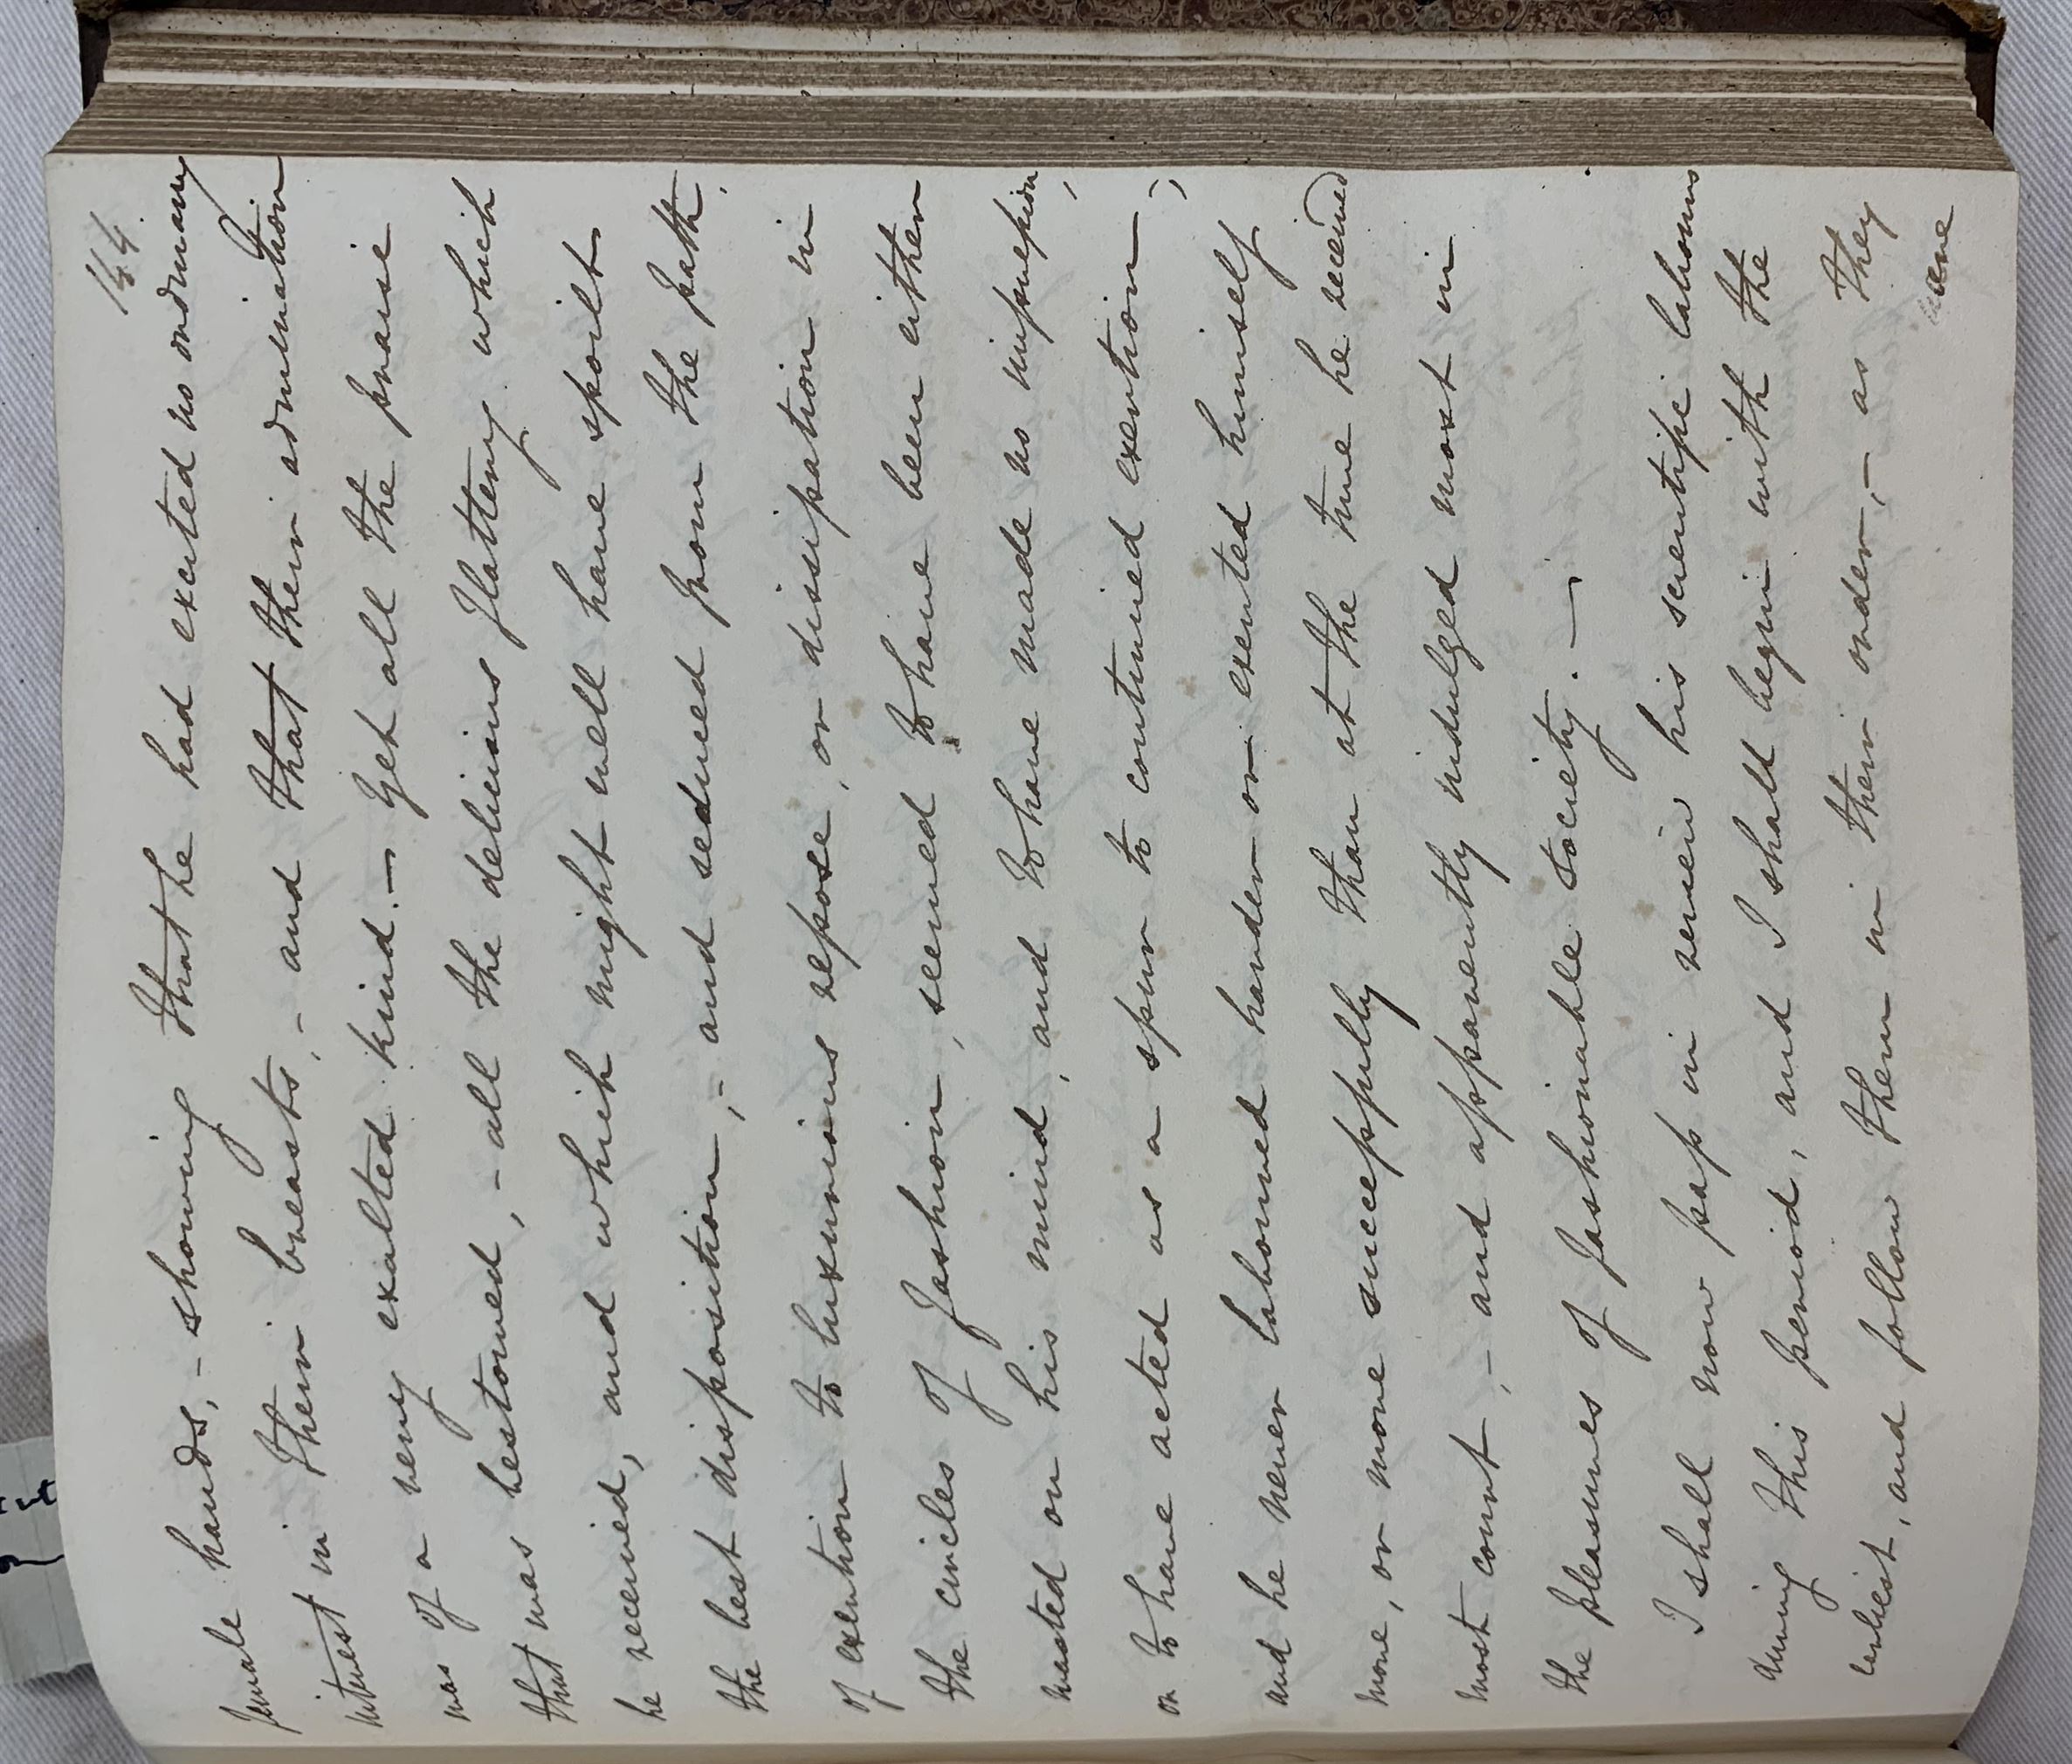 144.
female hands, – showing that he had excited no ordinary
interest in their breasts, – and that their admiration
was of a very exalted kind. – Yet all the praise
that was bestowed, – all the delicious flattery which
he received, and which might well have spoilt
the best disposition, – and seduced from the path
of exertion to luxurious repose, or dissipation in
the circles of fashion, seemed to have been either
wasted on his mind, and to have made no impression,
or to have acted as a spur to continued exertion;
and he never laboured harder or exerted himself
more, or more successfully than at the time he received
most court, – and apparently indulged most in
the pleasures of fashionable society. –
I shall now pass in review his scientific labours
during this period, and I shall begin with the
earliest, and follow them in their order, – as they
were